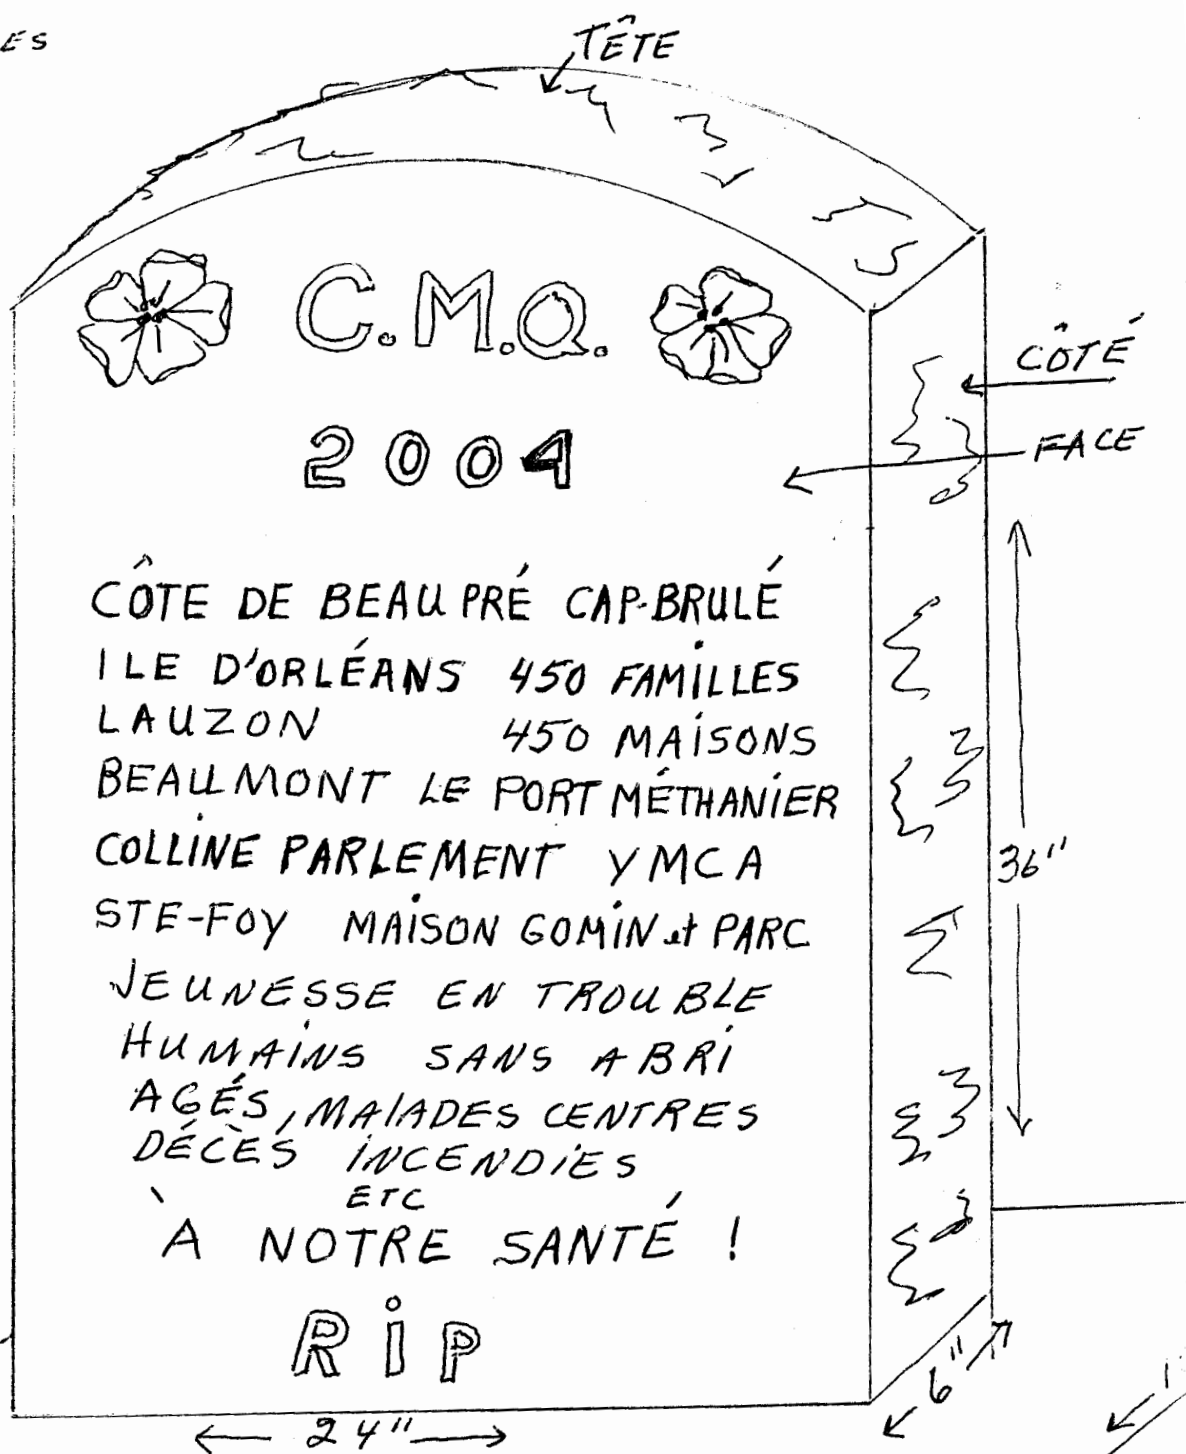 ES
TÊTE
C.M.Q.
CÔTÉ
2004
FACE
CÔTE DE BEAUPRÉ CAP-BRULÉ
ILE D'ORLÉANS 450 FAMILLES
LAUZON 450 MAISONS
BEAUMONT LE PORT MÉTHANIER
COLLINE PARLEMENT YMCA
36"
STE-FOY MAISON GOMIN et PARC
JEUNESSE EN TROUBLE
HUMAINS SANS ABRI
AGÉS, MALADES CENTRES
DÉCÈS INCENDIES
ETC
À NOTRE SANTÉ !
RIP
6"
24"